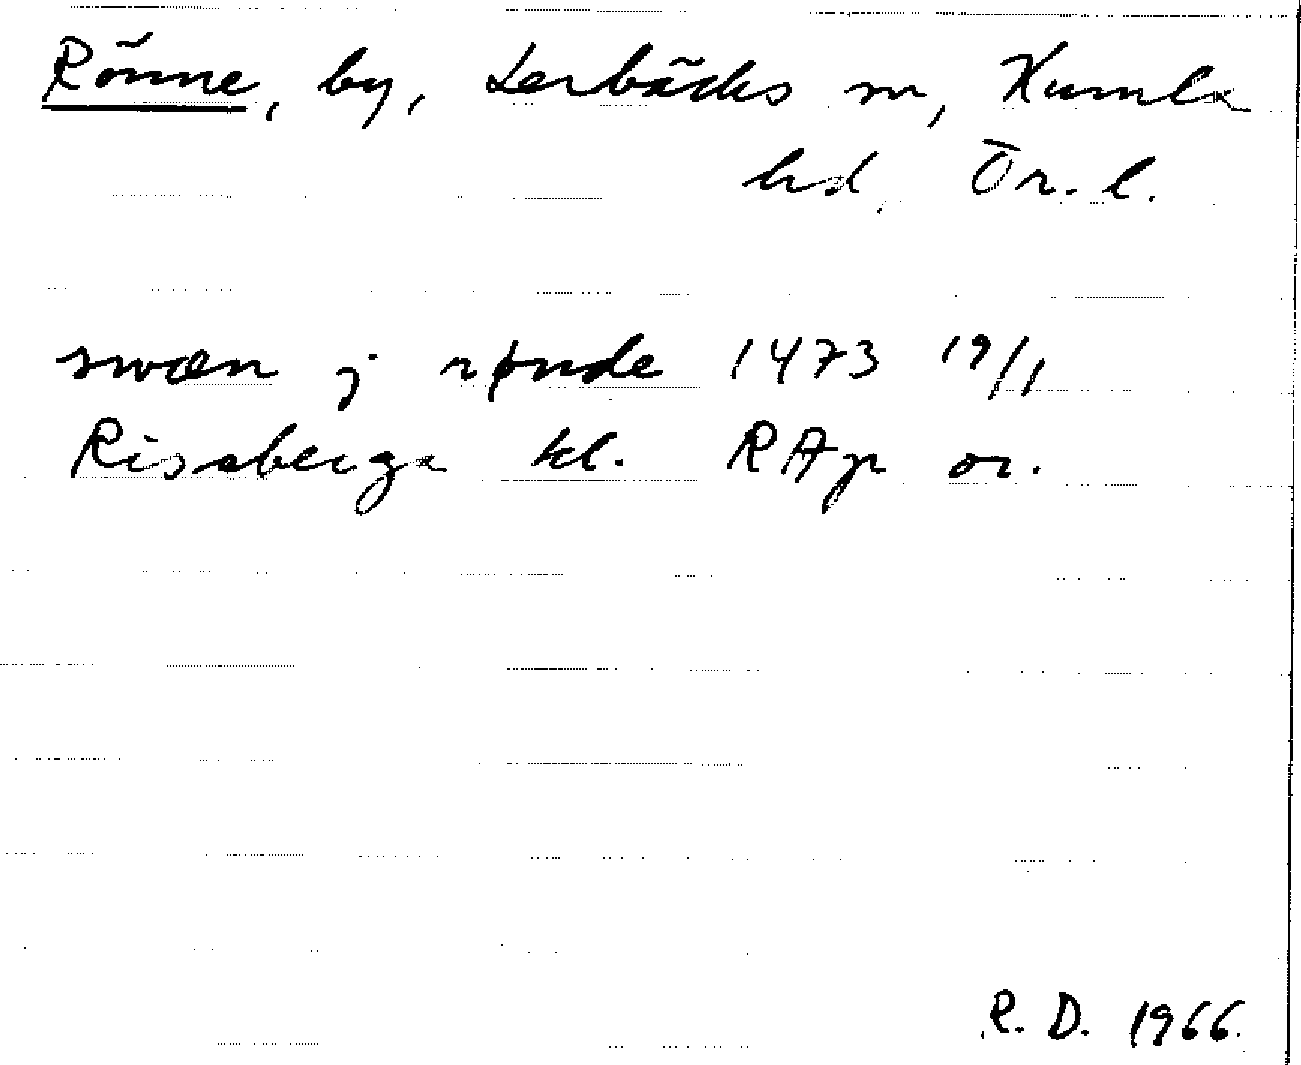 Rönne, by, Lerbäcks sn, Kumla
hd, Ör. l.
swæn j rønde 1473 19/1
Riseberga kl. RAp or.
R. D. 1966.